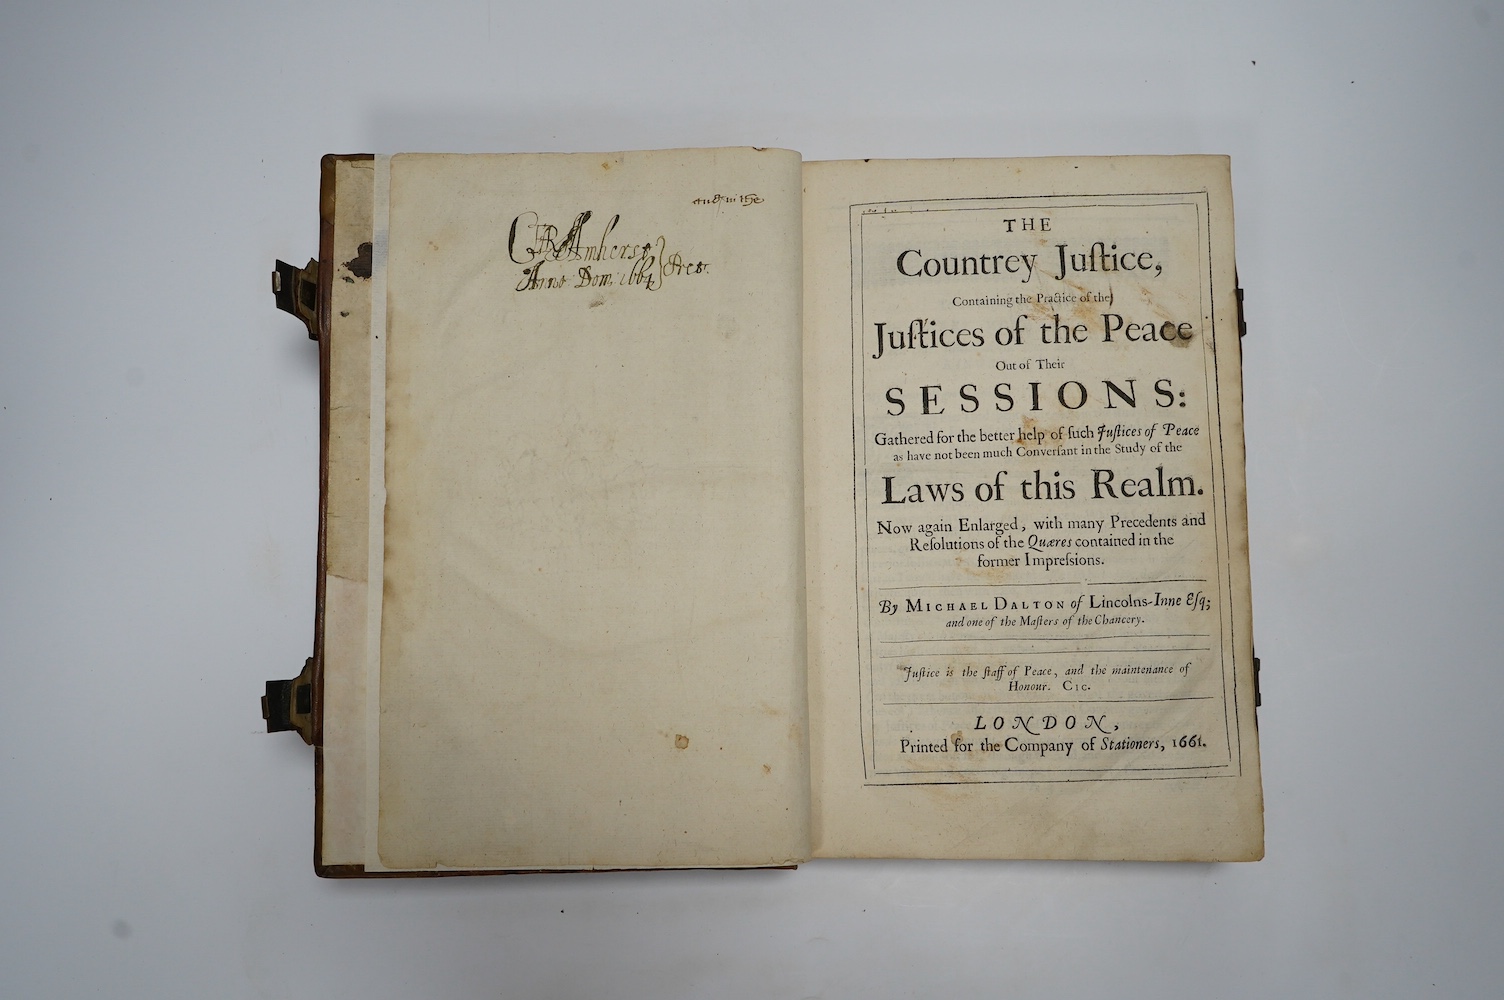 Amherst
Anno Dom. 1664
THE
Countrey Juſtice,
Containing the Practice of the
Juſtices of the Peace
Out of Their
SESSIONS:
Gathered for the better help of ſuch Juſtices of Peace
as have not been much Converſant in the Study of the
Laws of this Realm.
Now again Enlarged, with many Precedents and
Reſolutions of the Quæres contained in the
former Impreſsions.
By MICHAEL DALTON of Lincolns-Inne Eſq;
and one of the Maſters of the Chancery.
Juſtice is the ſtaff of Peace, and the maintenance of
Honour. CIC.
LONDON,
Printed for the Company of Stationers, 1661.